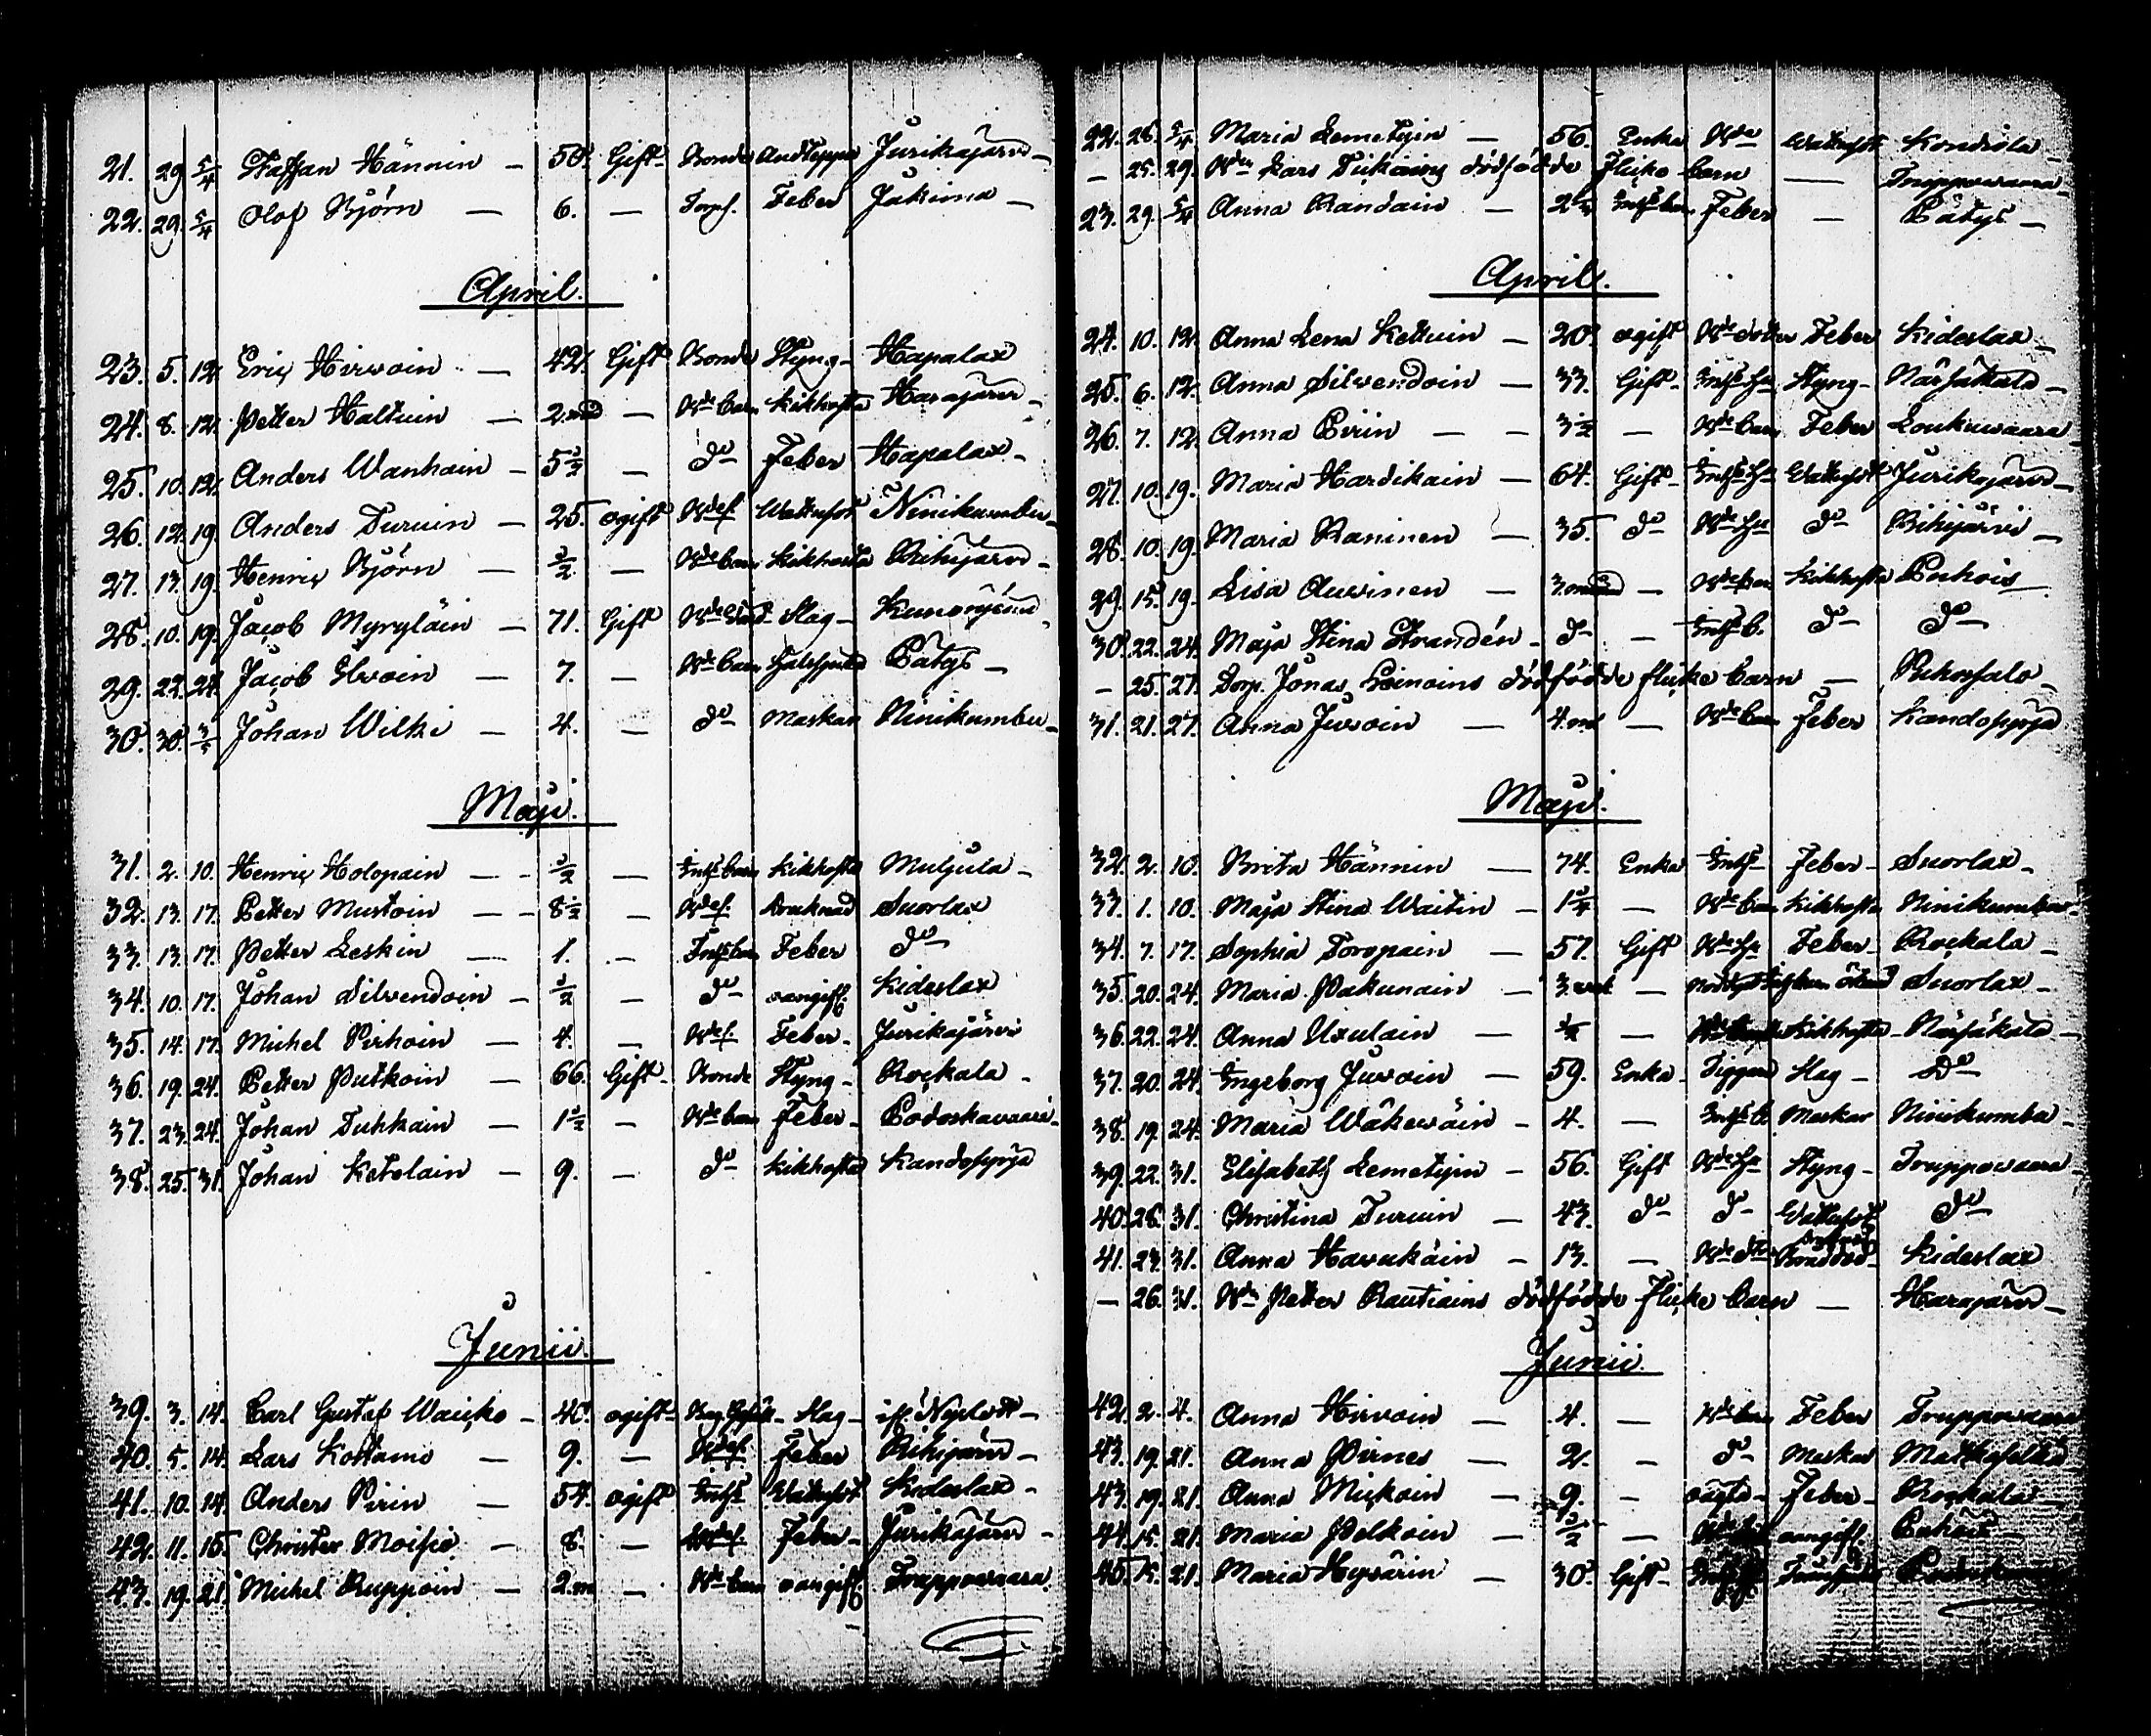 21. 29 5/4 Staffan Hännin — 50. Gift Bonde Andtäppa Jurikajärvi —
22. 29. 5/4 Olof Björn — 6. — Torpf. Feber Jakima —
April.
23. 5. 12. Eric Hirvoin — 42. Gift Bonde Styng — Hapalax
24. 8. 12. Petter Haltuin — 2. md — Bde barn Kikhosta Harajärvi —
25. 10. 12. Anders Wanhain — 5 1/2 — do Feber Hapalax —
26. 12. 19. Anders Turuin — 25. ogift Bdes. Wattusot Niinikumbu —
27. 13. 19. Henric Björn — 1/2 — Bde barn Kikhosta Rihijärvi —
28. 10. 19. Jacob Myryläin — 71. Gift Slag —
29. 22. 24. Jacob Elvoin — 7. — Bde barn Pätys —
30. 30. 3/5 Johan Wilki — 4. — do Maskar Niinikumbu —
Maji.
31. 2. 10. Henric Holopain — 1/2 — Inhs barn Kikhosta Muljula —
32. 13. 17. Petter Mustoin — 8 1/2 — Bdes. Suorlax
33. 13. 17. Petter Leskin — 1. — Inhs barn Feber do
34. 10. 17. Johan Silvendoin — 1/2 — do oangift. Kideslax
35. 14. 17. Michel Pirhoin — 4. — Bdes. Feber — Jurikajärvi
36. 19. 24. Petter Putkoin — 66. Gift — Bonde Styng — Rockala —
37. 23. 24. Johan Tuhkain — 1 1/2 — Bde barn Feber — Podoskavaara —
38. 25. 31. Johan Ketolain — 9. — do Kikhosta Kandosyrjä
Junii.
39. 3. 14. Carl Gustaf — 40. ogift — Slag —
40. 5. 14. Lars Kottama — 9. — Bdes. Feber Rihijärvi —
41. 10. 14. Anders Pirin — 54. ogift Inhs Wattusot Kideslax —
42. 11. 15. Christer Moisio — 8. — Bdes. Feber — Jurikajärvi —
43. 19. 21. Michel Ruppoin — 2. m — Bde barn oangift. Truppovaara
22. 28. 5/4 Maria Lemetyin — 56. Enka Bde Wattusot Kondiola —
— 25. 29. Bdn Lars Tiikainis dödfödde flicke barn — Truppovaara —
23. 29. 5/4 Anna Randain — Inhs barn Feber — Pätys —
April.
24. 10. 12. Anna Lena Kettuin — 20. ogift Bde dotter Feber Kideslax —
25. 6. 12. Anna Silvendoin — 33. Gift — Inhs hu Styng — Närsäkkälä —
26. 7. 12. Anna Pirin — 3 1/2 — Bde barn Feber Loukuvaara —
27. 10. 19. Maria Hardikain — 64. Gift — Inhs hu Wattusot Jurikajärvi —
28. 10. 19. Maria Raninen — 35. do Bde hu do Rihijärvi —
29. 15. 19. Lisa Auvinen — 3. månad — Bde barn Kikhosta Puhois
30. 22. 24. Maja Stina Strandén — do — Inhs b. do do
— 25. 27. Torp. Jonas Loinoins dödfödde flicke barn —
31. 21. 27. Anna Juvoin — 4. md — Bde barn Feber Kandosyrjä
Maji.
32. 2. 10. Brita Hännin — 74. Enka Inhs Feber — Suorlax —
33. 1. 10. Maja Stina Waitin — 1 3/4 — Bde barn Kikhosta Niinikumbu —
34. 7. 17. Sophia Toropain — 57. Gift Bde hu Feber — Rockala —
35. 20. 24. Maria Pakunain — 3. — Suorlax —
36. 22. 24. Anna Uxulain — — Kikhosta — Närsäkkälä —
37. 20. 24. Ingeborg Juvoin — 59. Enka — Tiggare Slag — Do
38. 19. 24. Maria Wäkeväin — 4. — Inhs b. Maskar Niinikumbu —
39. 22. 31. Elisabeth Lemetyin — 56. Gift Bde hu Styng — Truppovaara —
40. 28. 31. Christina Turuin — 43. do do Wattusot do
41. 23. 31. Anna Havukain — 13. — Kideslax
— 26. 31. Bdn Petter Rautiains dödfödde flicke barn — Harajärvi —
Junii.
42. 2. 4. Anna Hirvoin — 4. — Bde barn Feber Truppovaara
43. 19. 21. Anna Pirnes — 2. — do Maskar
43. 19. 21. Anna Mickoin — 9. — oägta — Feber — Rockala —
44. 15. 21. Maria Pelkoin — 1/2 — oangift. Puhois —
45. 15. 21. Maria — 30. Gift —